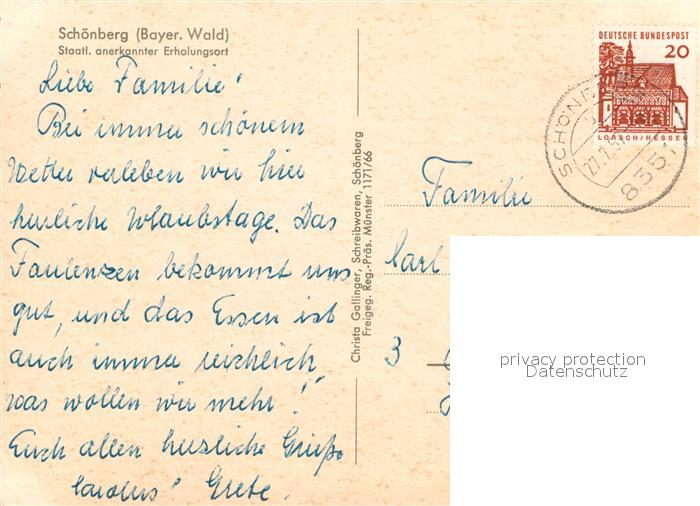 Schönberg (Bayer. Wald)
Staatl. anerkannter Erholungsort
Liebe Familie!
Bei immer schönem
Wetter verleben wir hier
herrliche Urlaubstage. Das
Faulenzen bekommt uns
gut, und das Essen ist
auch immer reichlich,
was wollen wir mehr!"
Euch allen herzliche Grüße
Grete.
Christa Gallinger, Schreibwaren, Schönberg
Freigeg. Reg.-Präs. Münster 1171/66
DEUTSCHE BUNDESPOST
20
LORSCH/HESSEN
SCHÖNBE
27.7.
8351
Familie
Carl
3
privacy protection
Datenschutz